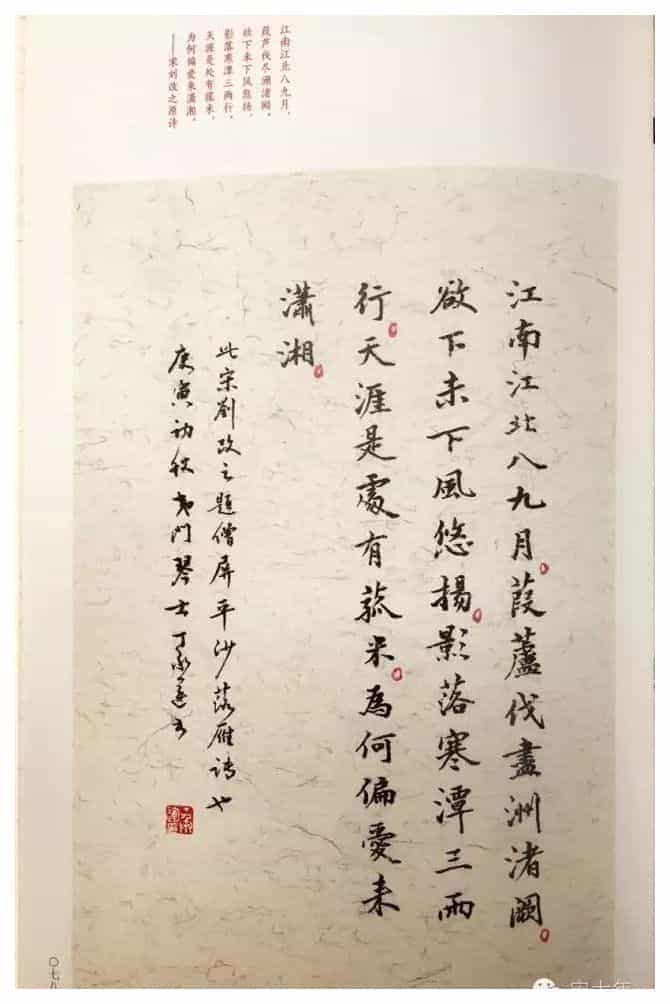 江南江北八九月，
葭芦伐尽洲渚阔。
欲下未下风悠扬，
影落寒潭三两行。
天涯是处有菰米，
为何偏爱来潇湘。
——宋刘改之原诗
江南江北八九月葭蘆伐盡洲渚闊
欲下未下風悠揚影落寒潭三兩
行天涯是處有菰米為何偏愛来
瀟湘
此宋劉改之題僧屏平沙落雁詩也
庚寅初秋夷门琴士丁承運书
〇七八